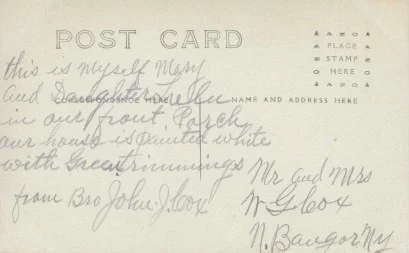 POST CARD
AZO
PLACE
STAMP
HERE
AZO
CORRESPONDENCE HERE
NAME AND ADDRESS HERE
this is myself Mary
and Daughter
in our front Porch
our house is Painted white
with Green trimmings
from Bro John J. Cox
Mr and Mrs
W G Cox
N. Bangor Ny